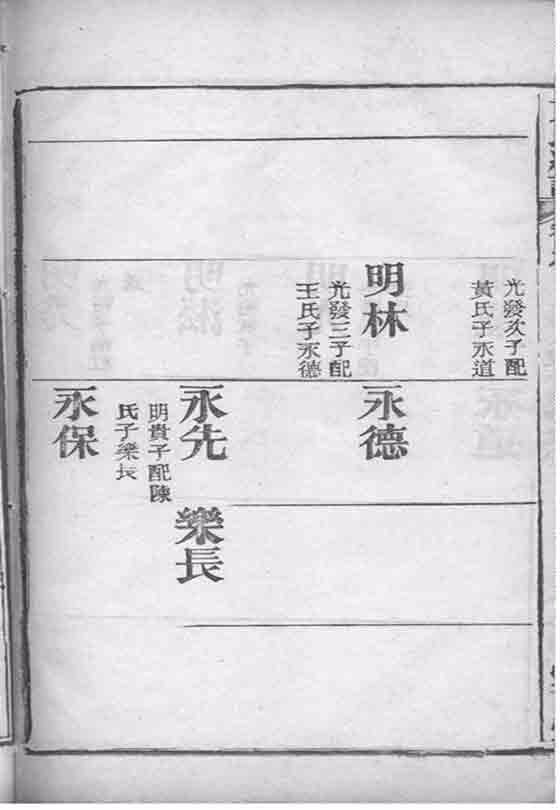 光發次子配
黃氏子永道
明林
光發三子配
王氏子永德
永德
永先
明貴子配陳
氏子樂長
永保
樂長